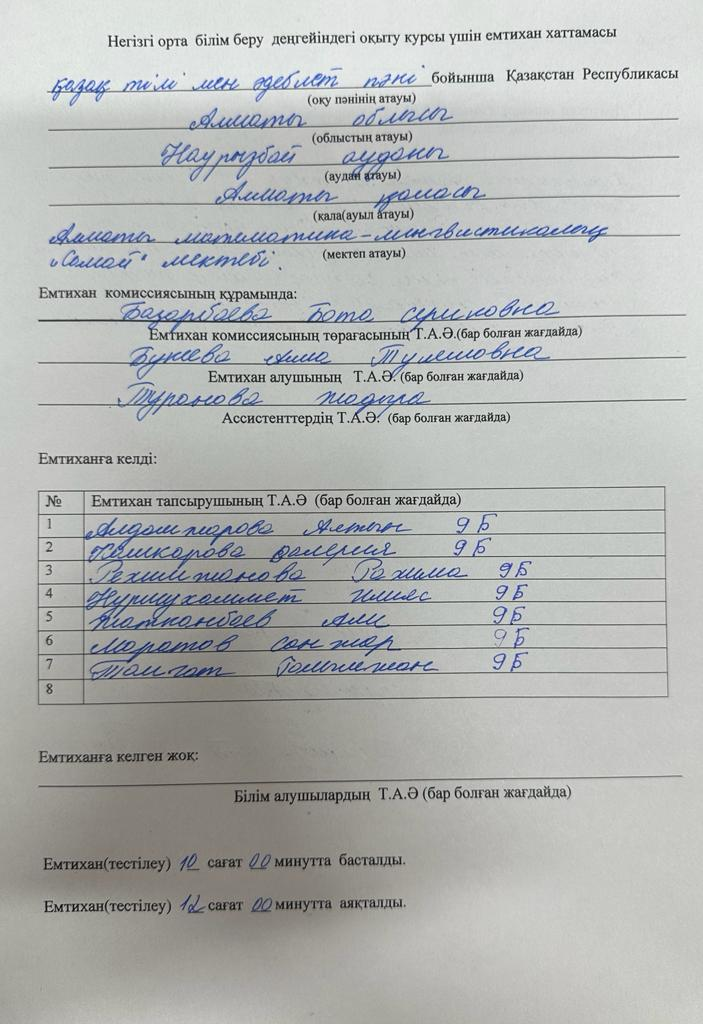 Негізгі орта білім беру деңгейіндегі оқыту курсы үшін емтихан хаттамасы
қазақ тілі мен әдебиет пәні бойынша Қазақстан Республикасы
(оқу пәнінің атауы)
Алматы облысы
(облыстың атауы)
Наурызбай ауданы
(аудан атауы)
Алматы қаласы
(қала(ауыл атауы)
Алматы математика-лингвистикалық
"Самай" мектебі.
(мектеп атауы)
Емтихан комиссиясының құрамында:
Базарбаева Бота сериковна
Емтихан комиссиясының төрағасының Т.А.Ә.(бар болған жағдайда)
Букеева Алма Тулешовна
Емтихан алушының Т.А.Ә. (бар болған жағдайда)
Туранова жадыра
Ассистенттердің Т.А.Ә. (бар болған жағдайда)
Емтиханға келді:
№ Емтихан тапсырушының Т.А.Ә (бар болған жағдайда)
1 Алдамжарова Алтын 9 Б
2 Кашкарова валерия 9 Б
3 Рахимжанова Рахима 9 Б
4 Нурмухаммет илияс 9 Б
5 Жатканбаев Али 9 Б
6 Маратов санжар 9 Б
7 Талғат 9 Б
8
Емтиханға келген жоқ:
Білім алушылардың Т.А.Ә (бар болған жағдайда)
Емтихан(тестілеу) 10 сағат 00 минутта басталды.
Емтихан(тестілеу) 12 сағат 00 минутта аяқталды.